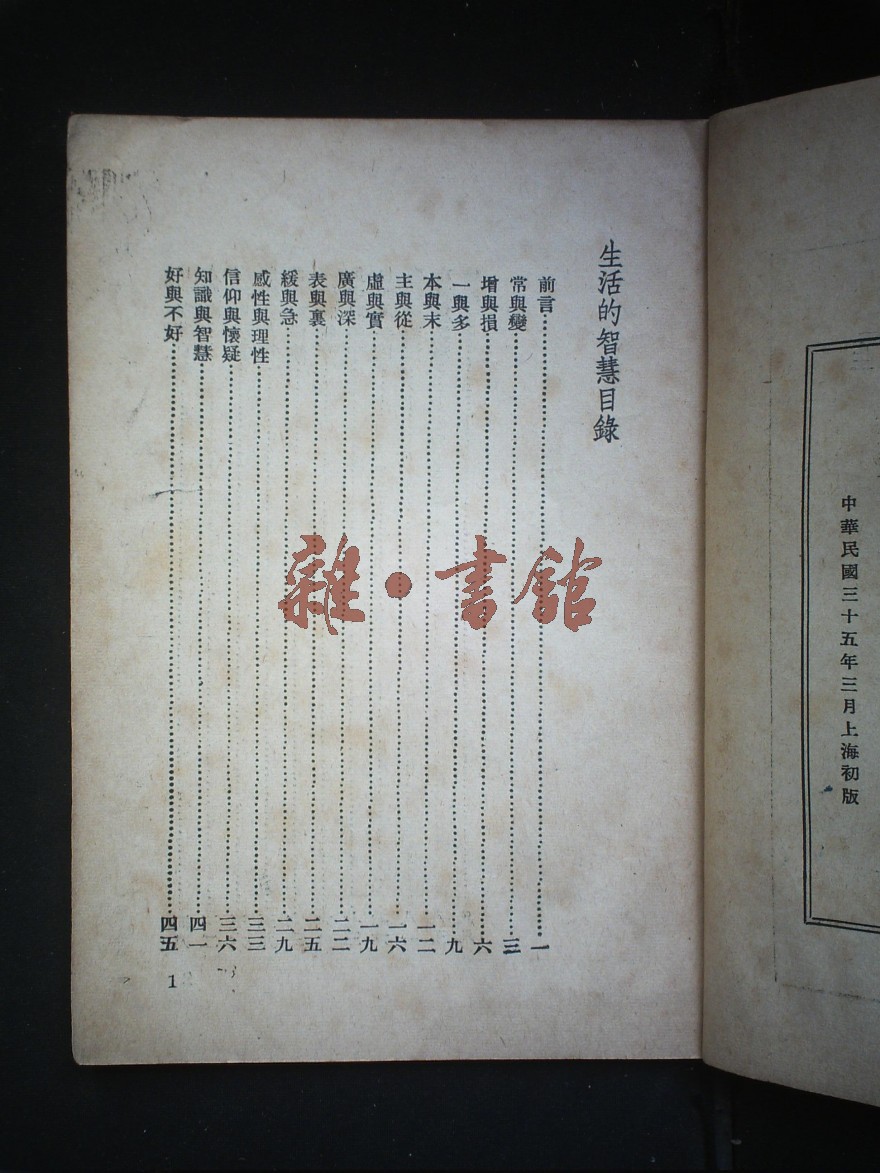 中華民國三十五年三月上海初版
生活的智慧目錄
前言……一
常與變……三
增與損……六
一與多……九
本與末……一二
主與從……一六
虛與實……一九
廣與深……二二
表與裏……二五
緩與急……二九
感性與理性……三三
信仰與懷疑……三六
知識與智慧……四一
好與不好……四五
1
雜·書館